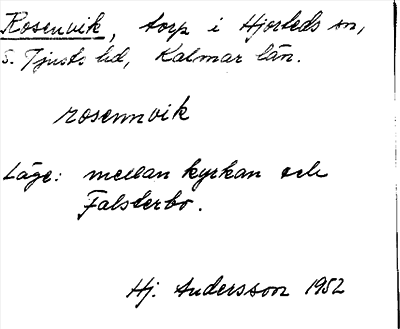 Rosenvik, torp i Hjorteds sn,
S. Tjusts hd, Kalmar län.
rosennvik
Läge: mellan kyrkan och
Falsterbo.
Hj. Andersson 1952